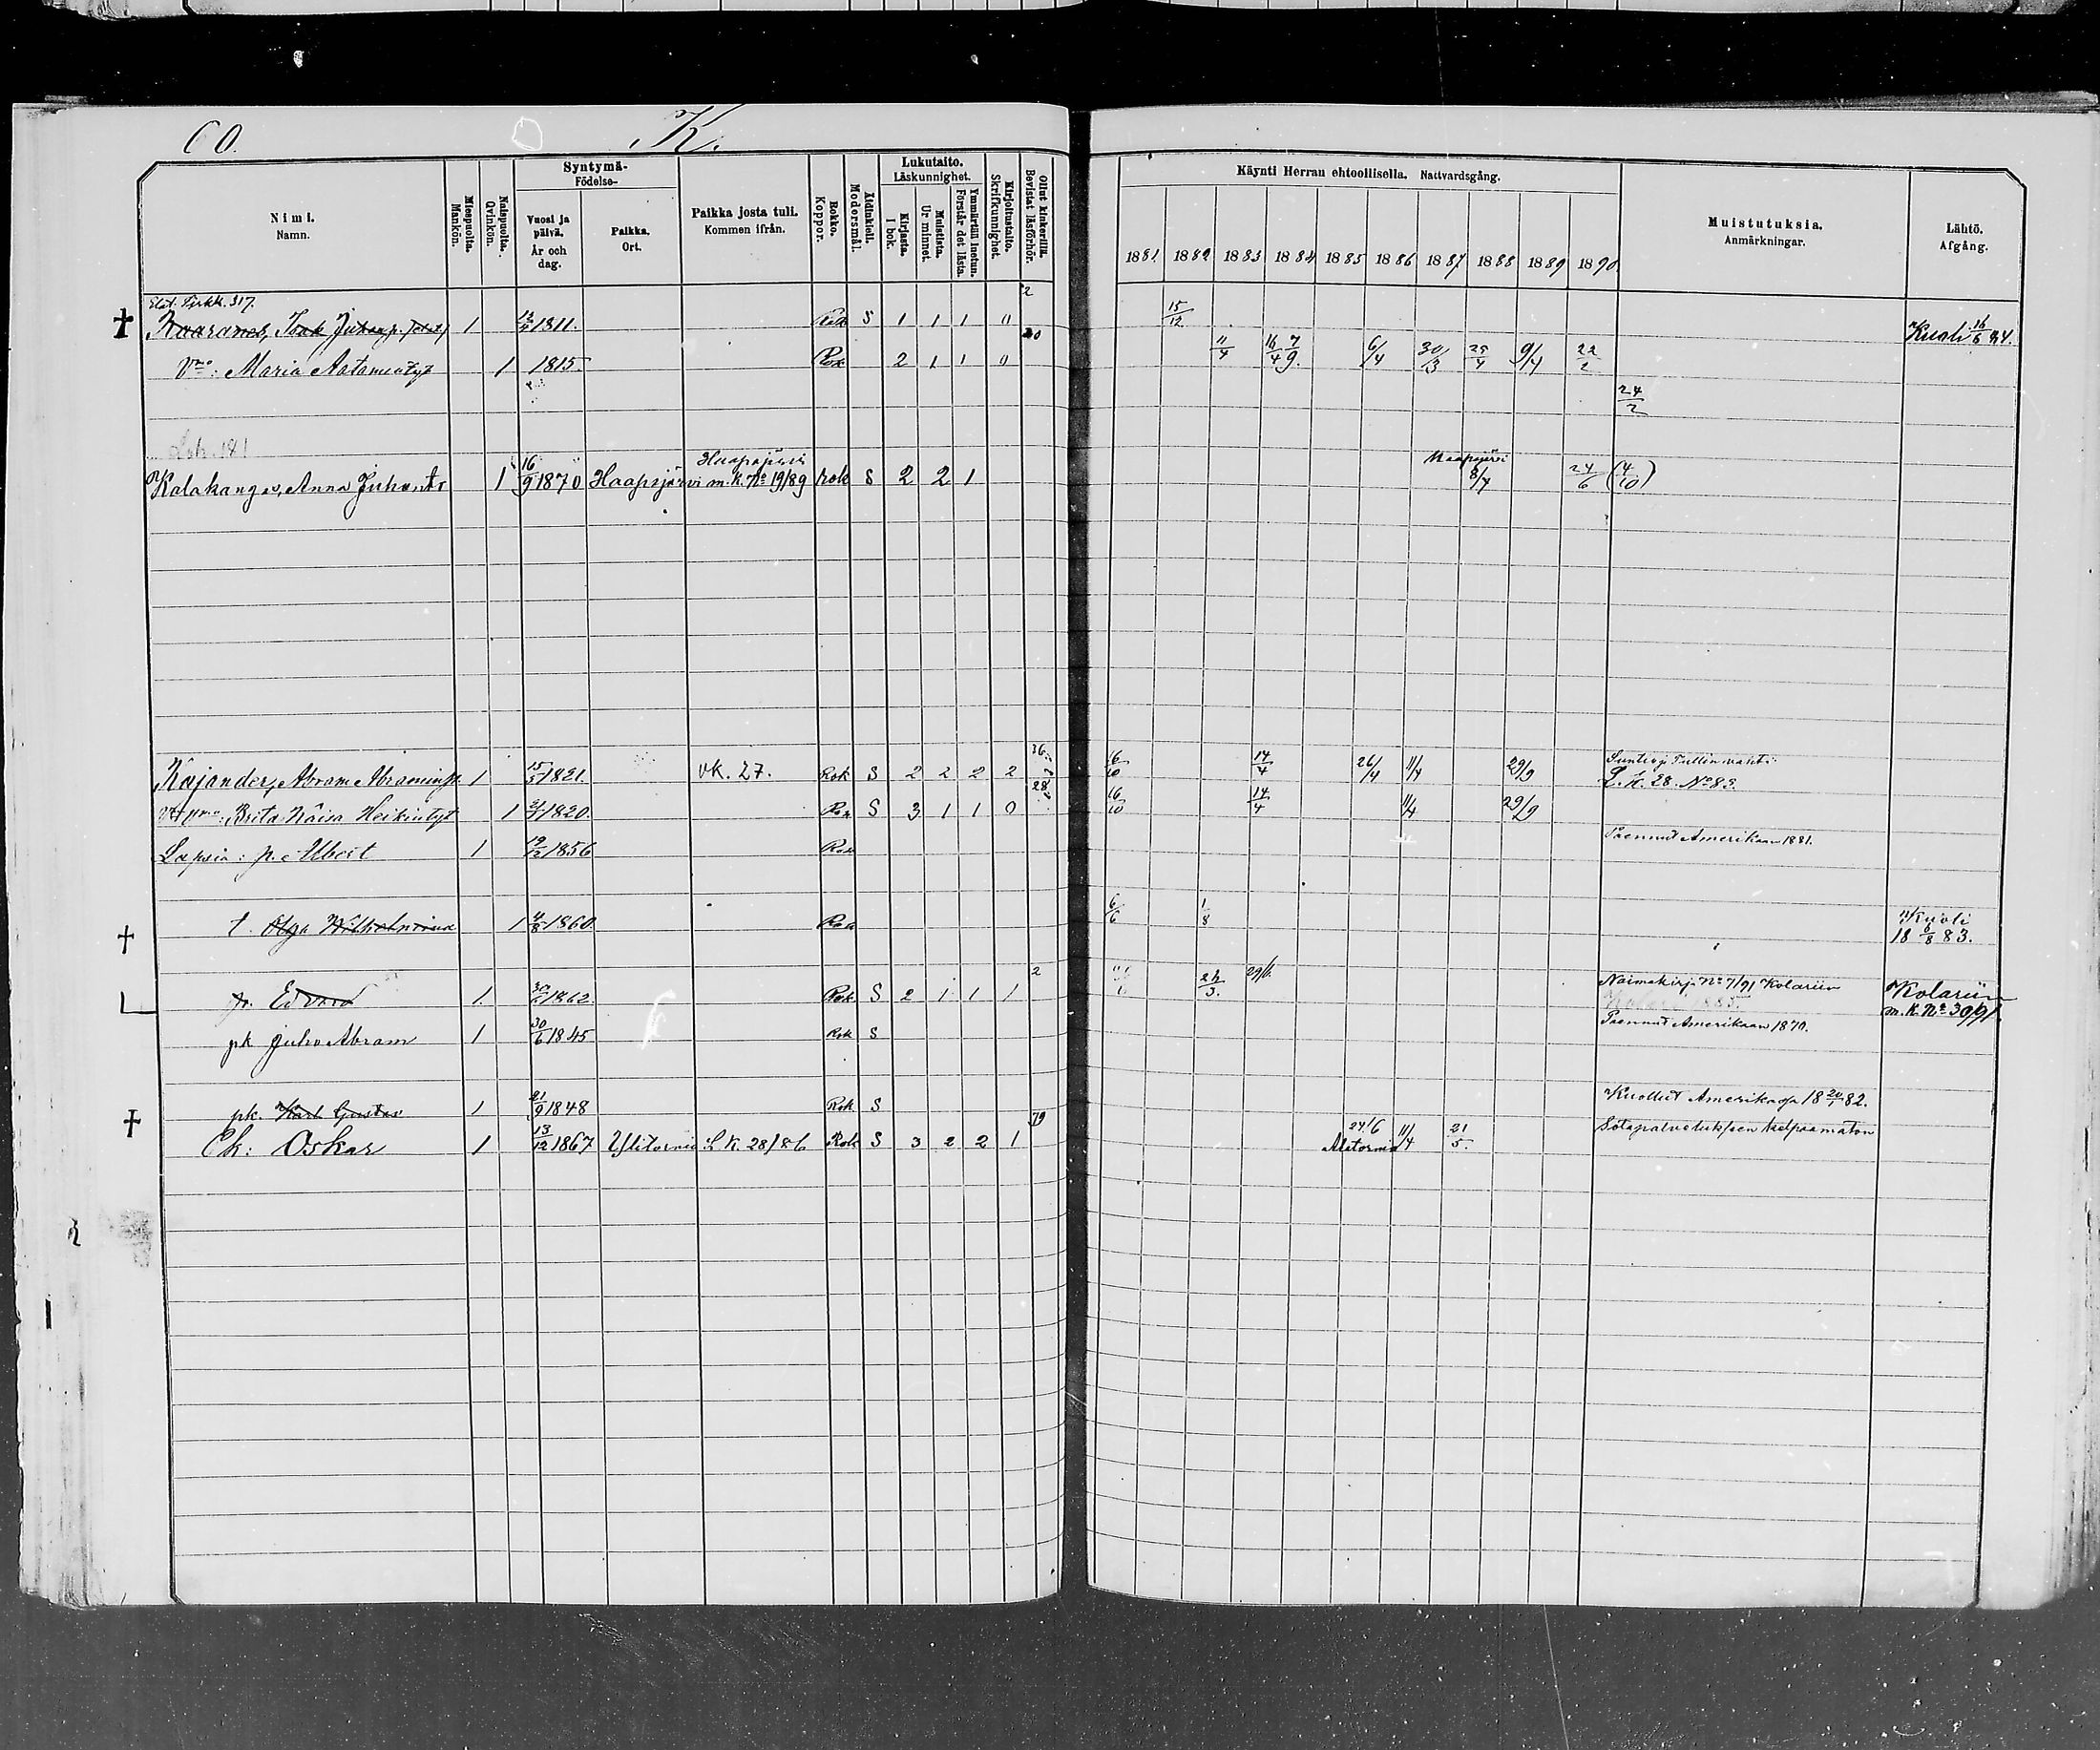 60.
K.
Nimi.
Namn.
Miespuolta.
Mankön.
Naispuolta.
Qvinkön.
Syntymä-
Födelse-
Vuosi ja päivä.
År och dag.
Paikka.
Ort.
Paikka josta tuli.
Kommen ifrån.
Rokko.
Koppor.
Äidinkieli.
Modersmål.
Lukutaito.
Läskunnighet.
Kirjasta.
I bok.
Muistista.
Ur minnet.
Ymmärtää luetun.
Förstår det lästa.
Kirjoitustaito.
Skrifkunnighet.
Ollut kinkerillä.
Bevistat läsförhör.
Käynti Herran ehtoollisella. Nattvardsgång.
1881 1882 1883 1884 1885 1886 1887 1888 1889 1890
Muistutuksia.
Anmärkningar.
Lähtö.
Afgång.
317. 2
Isak 1 1811. Rok S 1 1 1 0 15/12 Kuoli 16/6 84.
20
Vmo: Maria Aatamintyt 1 1815. Rok 2 1 1 0 11/4 16/4 7/9. 6/4 30/3 25/4 9/4 22/2
24/2
181
Haapajärvi Haapajärvi
Kalakangas, Anna Juhont. 1 16/9 1870 Haapajärvi m.k. No 19/89 rok S 2 2 1 8/4 24/6 (4/10)
Kajander, Abram Abraminp. 1 15/5 1821. vk. 27. Rok S 2 2 2 2 16/10 14/4 26/4 11/4 29/9 L.K. 28. No 83.
Brita Kaisa Heikintyt 1 1820. Rok S 3 1 1 0 16/10 14/4 11/4 29/9
Lapsia: p. Albert 1 1856 Rok Paennut Amerikaan 1881.
t. Olga Wilhelmina 1 4/8 1860. Rok 6/6 1/8 Kuoli
18 6/8 83.
2
p. Edvard 1 30/6 1862. Rok S 2 1 1 1 29/6. Naimakirja No 7/91 Kolariin Kolariin
m.k. No 39/91.
pk Juho Abram 1 30/6 1845 Rok S Paennut Amerikaan 1870.
pk. Karl Gustav 1 21/9 1848 Rok S Kuollut Amerikassa 18 20/1 82.
79
Ek: Oskar 1 13/12 1867 Ylitornio L.K. 28/86 Rok S 3 2 2 1 24/6 Alatornio 11/4 21/5. Sotapalvelukseen kelpaamaton